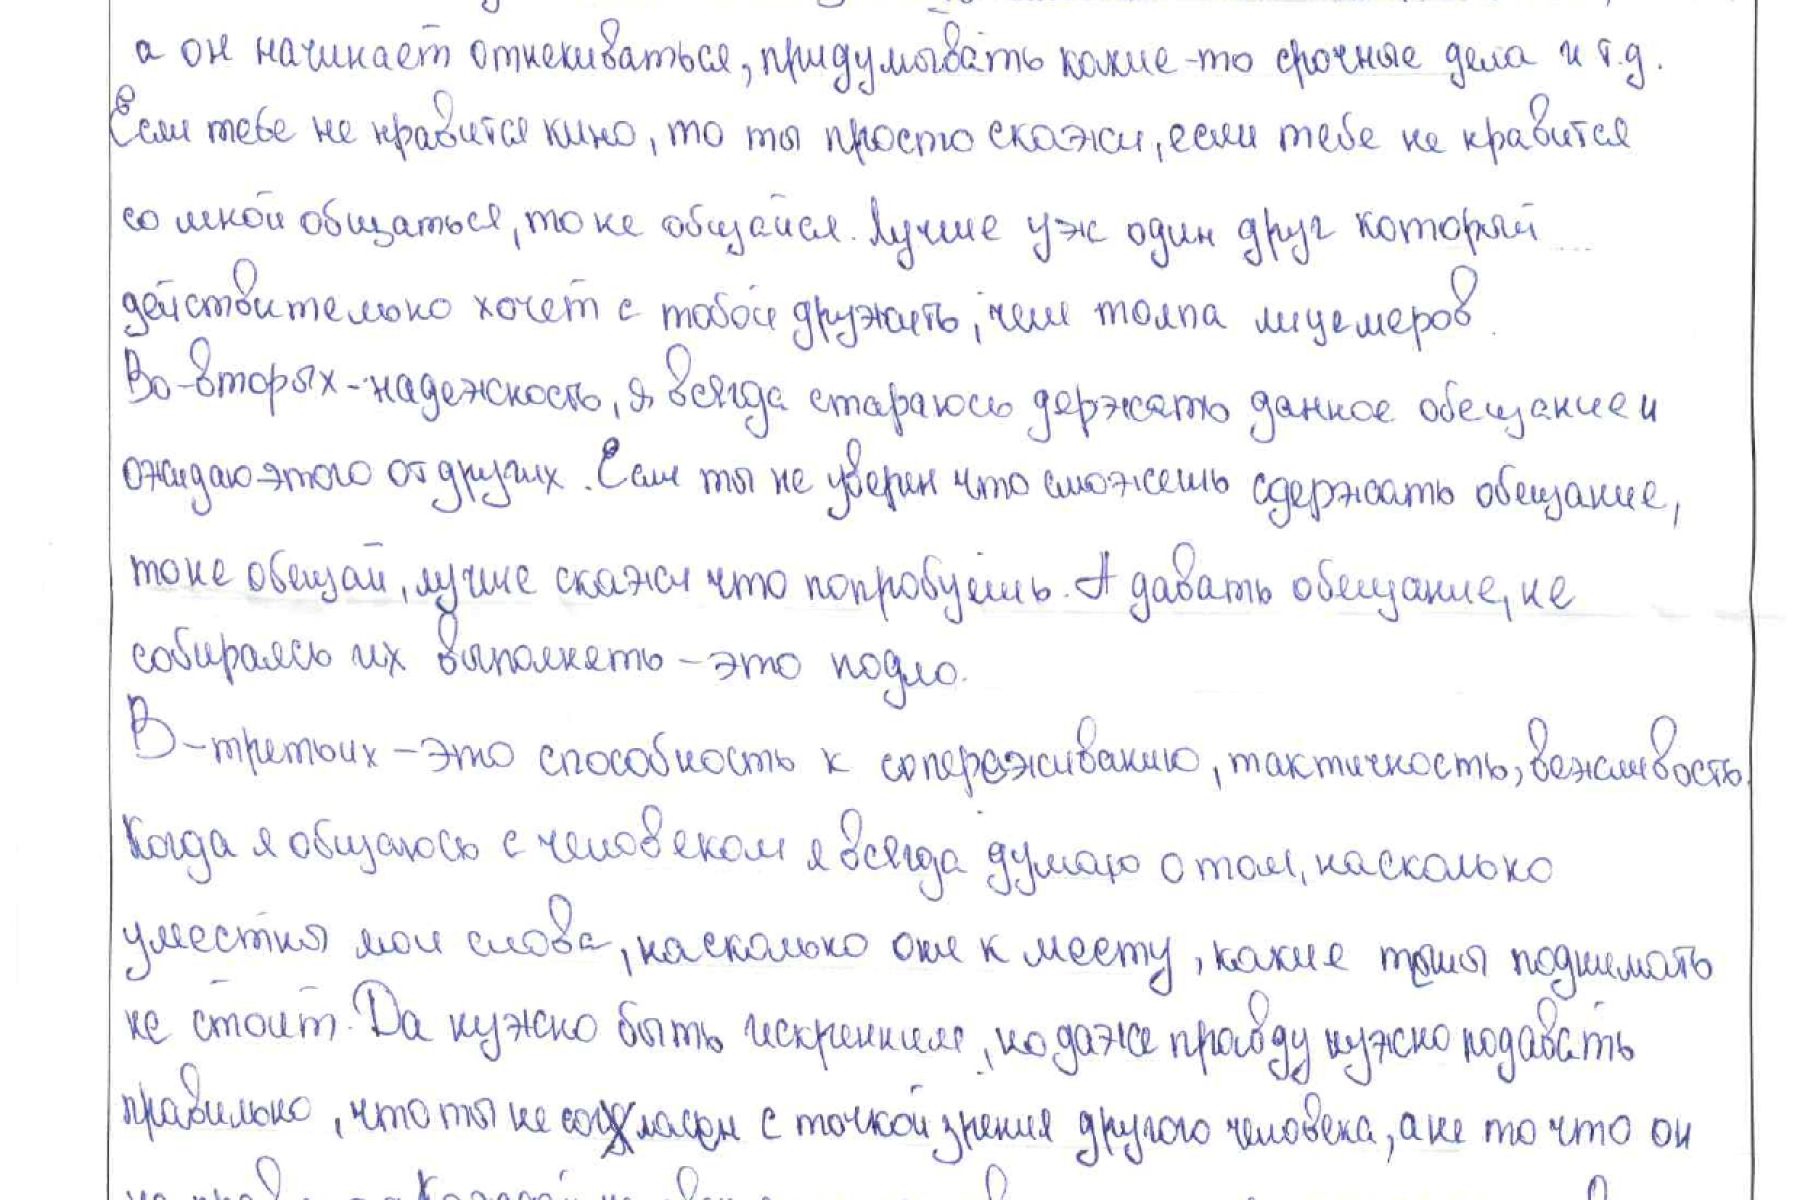 а он начинает отнекиваться, придумывать какие-то срочные дела и т.д.
Если тебе не нравится кино, то ты просто скажи, если тебе не нравится
со мной общаться, то не общайся. Лучше уж один друг который
действительно хочет с тобой дружить, чем толпа лицемеров.
Во-вторых - надежность, я всегда стараюсь держать данное обещание и
ожидаю этого от других. Если ты не уверен что сможешь сдержать обещание,
то не обещай, лучше скажи что попробуешь. А давать обещание, не
собираясь их выполнять - это подло.
В-третьих - это способность к сопереживанию, тактичность, вежливость.
Когда я общаюсь с человеком я всегда думаю о том, насколько
уместны мои слова, насколько они к месту, какие темы поднимать
не стоит. Да нужно быть искренним, но даже правду нужно подавать
правильно, что ты не согласен с точкой зрения другого человека, а не то что он